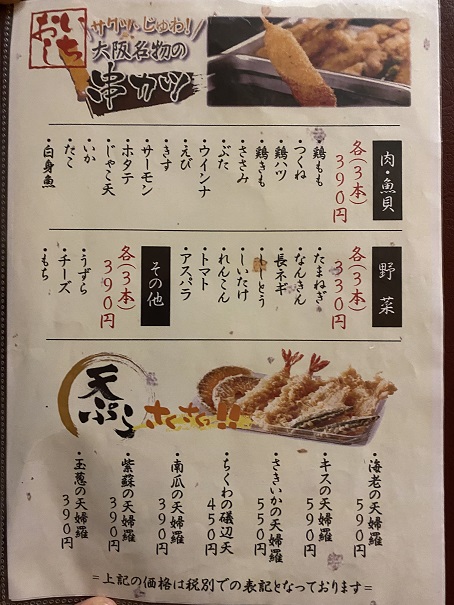 いちおし
サクッ、じゅわ!
大阪名物の
串カツ
肉・魚貝
各(3本)
390円
・鶏もも
・つくね
・鶏ハツ
・鶏きも
・ささみ
・ぶた
・ウインナ
・えび
・きす
・サーモン
・ホタテ
・じゃこ天
・いか
・たこ
・白身魚
野菜
各(3本)
330円
・たまねぎ
・なんきん
・長ネギ
・ししとう
・しいたけ
・れんこん
・トマト
・アスパラ
その他
各(3本)
390円
・うずら
・チーズ
・もち
天ぷら
さくさく!!
・海老の天婦羅
590円
・キスの天婦羅
590円
・さきいかの天婦羅
550円
・ちくわの磯辺天
450円
・南瓜の天婦羅
390円
・紫蘇の天婦羅
390円
・玉葱の天婦羅
390円
=上記の価格は税別での表記となっております=